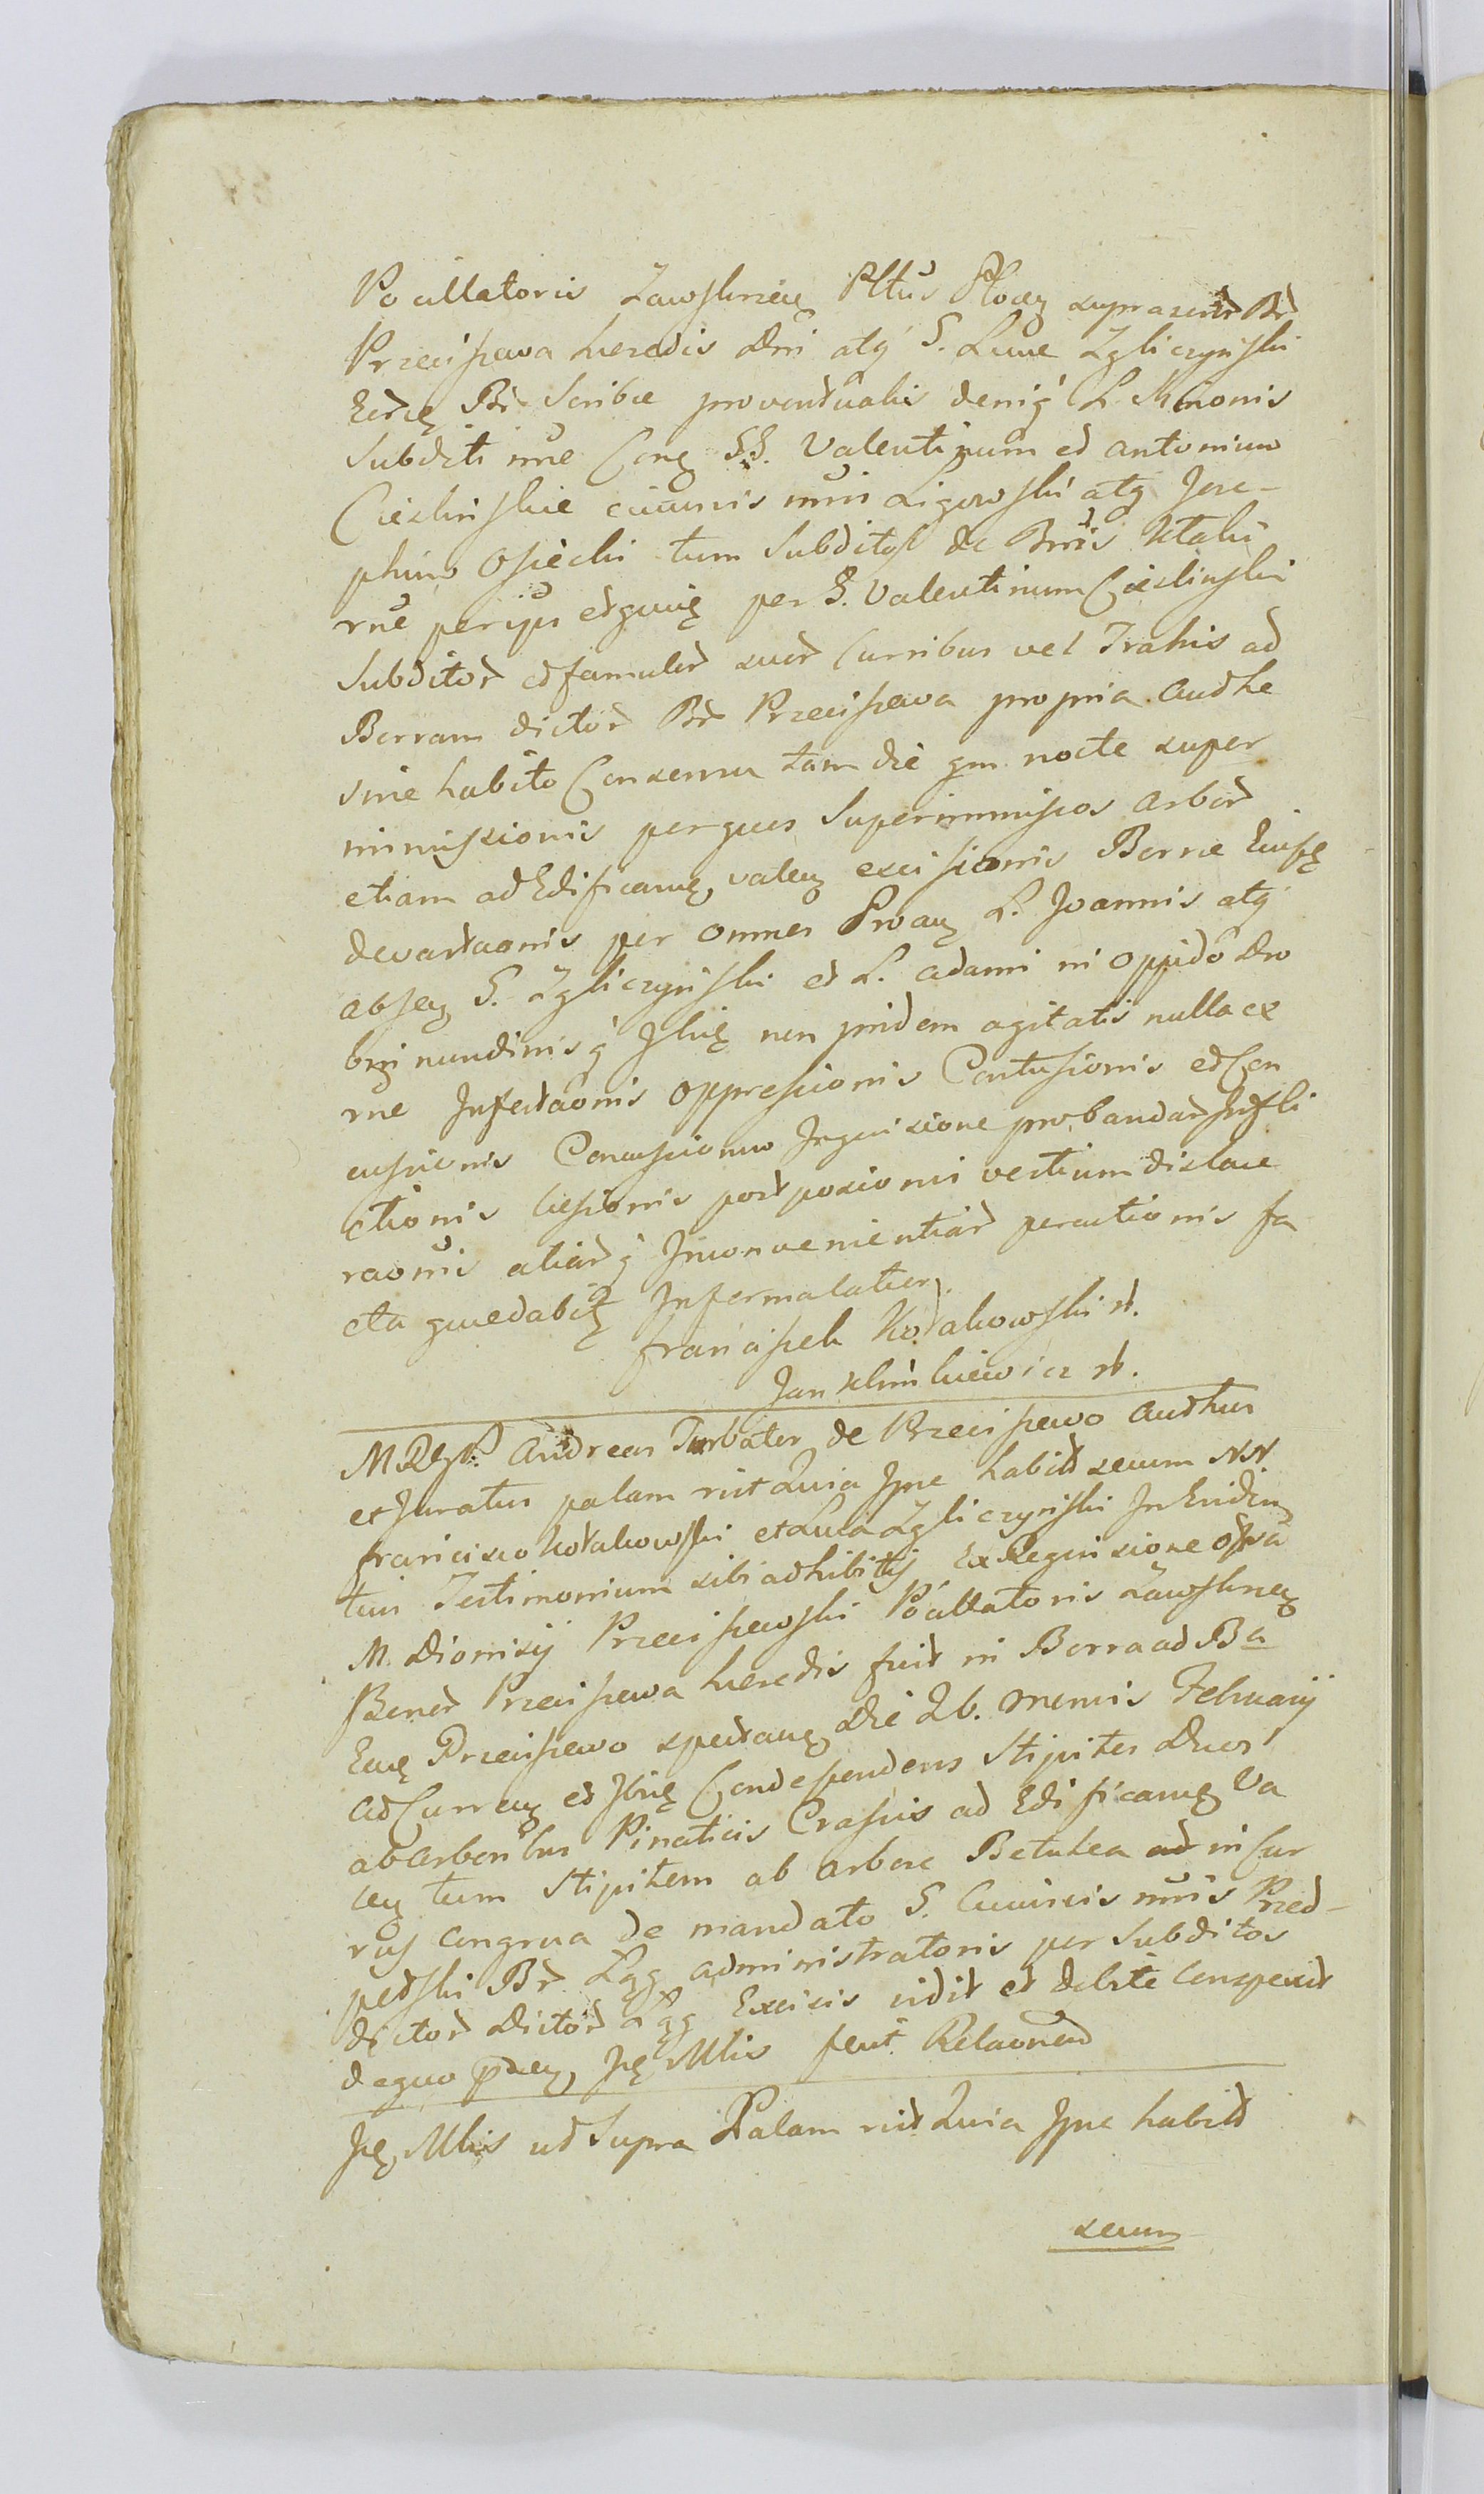 Pocillatoris Zawskrzen Pltus Plocen suprascrtr Br
Przeciszewa heredis Dni atq S. Lucae Zgliczynski
Eordę Br Scribae proventualis deniq L. Simonis
Subditi nne Conq SS. Valentinum et Antonium
Cieslinskie civumis nnri Ligowski atq Jose-
phum Osiecki tum Subditos de Bnis Ktalu
rne per ijus etquuę per S. Valentinum Cieslinski
Subditor et famulor suor Curribus vel Trahis ad
Borram dictor Br Przeciszewa propria Audhe
sine habito Consensu tam die qm nocte super
inmissionis per quos Superinmissos arbor
etiam ad Edificanę valen excisionis Borrae Eiusę
devastaonis per omnes Proan L. Joannis atq
absen S. Zgliczynski et L. Adami in oppido Dro
bni nundinisq Ibię non pridem agitatis nulla ex
rne Infestaonis oppressionis Contusionis et Con
cussionis Concussionum Inquisione probandar Infli
ctionis laesionis postposionis vestium dislace
raonis aliarq Inconvenientiar percutionis fa
cta quaedabię Informalater.
Franciszek Kołakowski st.
Jan Klimkiewicz st.
M Rgst. Andreas Turbator de Przeciszewo Audhus
et Juratus palam rict Quia Ipne habit secum NN.
Francisco Kołakowski et Luca Zgliczynski In Eviden
tius Testimonium sibi adhibitis Ex Requisione offsa
M. Dionisij Przeciszewski Pocillatoris Zawskrzen
Bonor Przeciszewa heredis fuit in Borra ad Ba
Eaę Przeciszewo spectanę Die 26. Mensis Februarij
ad Curren et Ibię Condepondens Stipites Duos
ab arboribus Pinaticis Crassis ad Edificanę Va
len tum Stipitem ab arbore Betulea in Cur
rus congrua de mandato S. Cuiuncis nnis Przed-
petski Br Lgg administratoris per Subditos
dictor Dictor Lgg Excisis vidit et debite conspexit
dequo pnen Ję Mlis fecit Relaonem
Ję Mlis ut Supra Palam rict Quia Ipne habit
secum